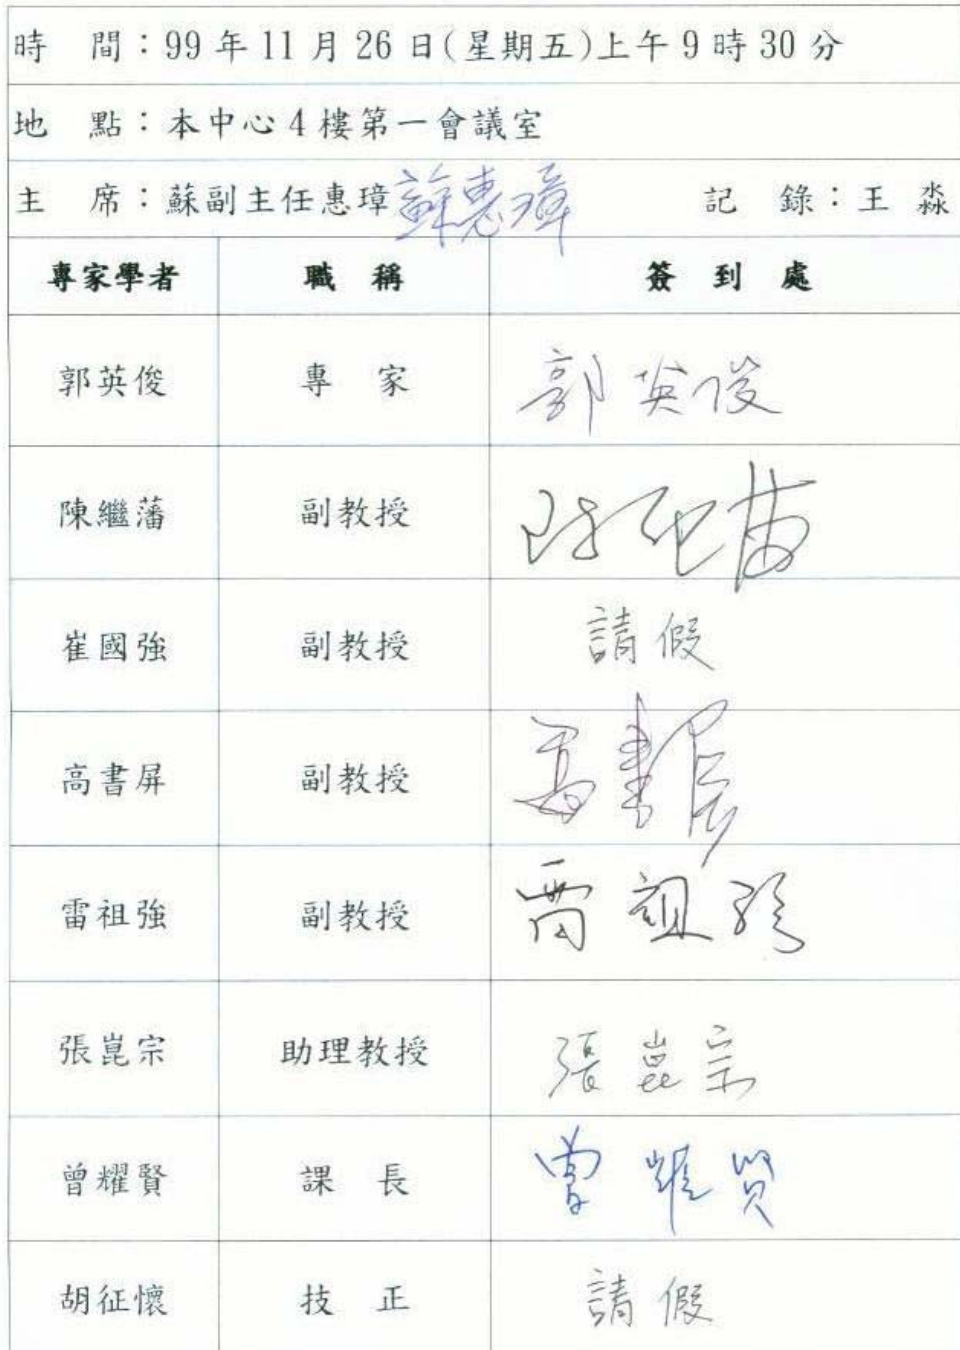 時 間：99 年 11 月 26 日(星期五)上午 9 時 30 分
地 點：本中心 4 樓第一會議室
主 席：蘇副主任惠璋 蘇惠璋 記 錄：王 淼
專家學者 職 稱 簽 到 處
郭英俊 專 家 郭英俊
陳繼藩 副教授 陳繼藩
崔國強 副教授 請假
高書屏 副教授 高書屏
雷祖強 副教授 雷祖強
張崑宗 助理教授 張崑宗
曾耀賢 課 長 曾耀賢
胡征懷 技 正 請假